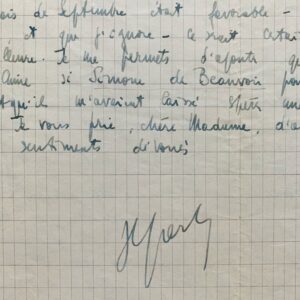 ois de Septembre était favorable -
et que j'ignore - ce serait certai
lleure. Je me permets d'ajouter qu
Anne si Simone de Beauvoir pou
qu'ils m'avaient laissé
Je vous prie, chère Madame, d'a
sentiments dévoués